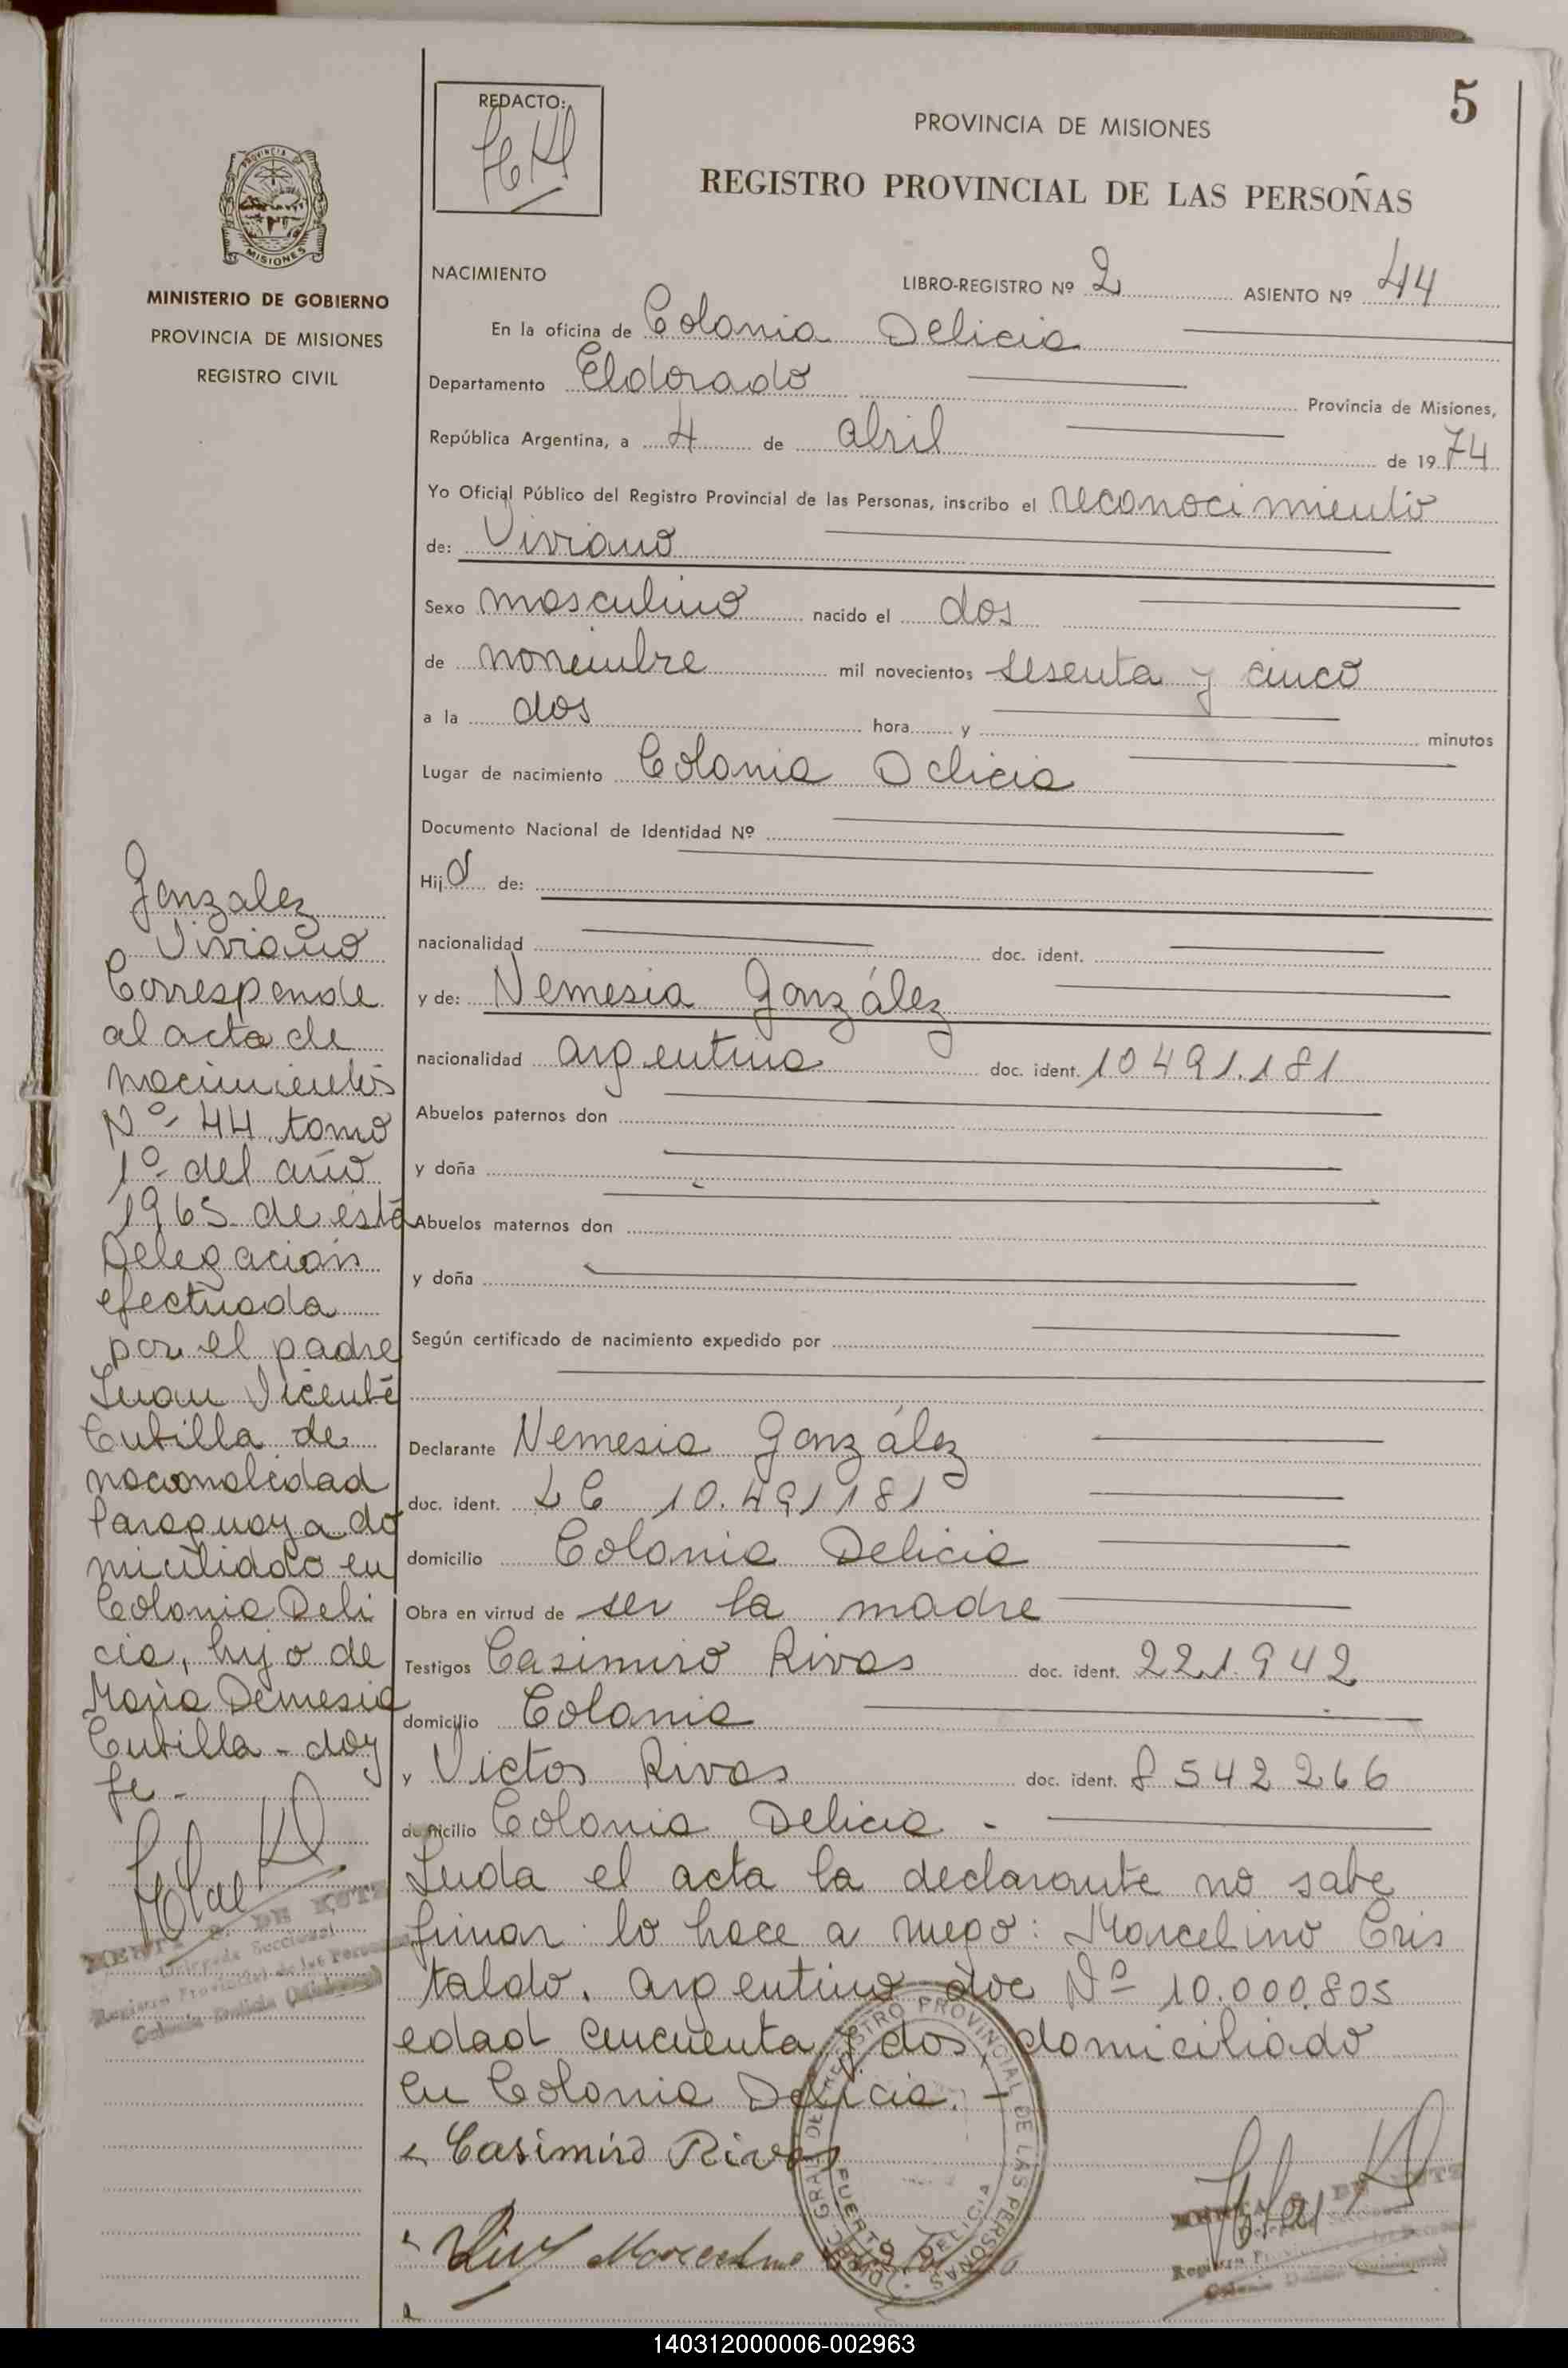 5
REDACTO:
PROVINCIA DE MISIONES
REGISTRO PROVINCIAL DE LAS PERSOÑAS
PROVINCIA DE
MISIONES
MINISTERIO DE GOBIERNO
PROVINCIA DE MISIONES
REGISTRO CIVIL
NACIMIENTO LIBRO-REGISTRO Nº 2 ASIENTO Nº 44
En la oficina de Colonia Delicia
Departamento Eldorado Provincia de Misiones,
República Argentina, a 4 de abril de 1974
Yo Oficial Público del Registro Provincial de las Personas, inscribo el reconocimiento
de: Viviano
Sexo masculino nacido el dos
de noviembre mil novecientos sesenta y cinco
a la dos hora y minutos
Lugar de nacimiento Colonia Delicia
Documento Nacional de Identidad Nº
Hijo de:
nacionalidad doc. ident.
y de: Nemesia González
nacionalidad argentina doc. ident. 10491.181
Abuelos paternos don
y doña
Abuelos maternos don
y doña
Según certificado de nacimiento expedido por
Declarante Nemesia González
doc. ident. L C 10.491181
domicilio Colonia Delicia
Obra en virtud de ser la madre
Testigos Casimiro Rivas doc. ident. 221.942
domicilio Colonia
y Victor Rivas doc. ident. 8542266
domicilio Colonia Delicia -
Leida el acta la declarante no sabe
firmar lo hace a ruego: Marcelino Cris
taldo. argentino doc Nº 10.000.805
edad cincuenta y dos, domiciliado
en Colonia Delicia. -
Casimiro Rivas
Marcelino
Gonzalez
Viviano
Corresponde
al acta de
nacimientos
Nº 44 tomo
1º del año
1965 de esta
Delegación
efectuada
por el padre
Juan Vicente
Cubilla de
nacionalidad
Paraguaya do
miciliado en
Colonia Deli
cia, hijo de
Maria Demesia
Cubilla - doy
fe -
DE KOTZ
Delegada Seccional
Registro Provincial de las Personas
Colonia Delicia (Misiones)
REGISTRO PROVINCIAL DE LAS PERSONAS
PUERTO DELICIA
DE KOTZ
140312000006-002963